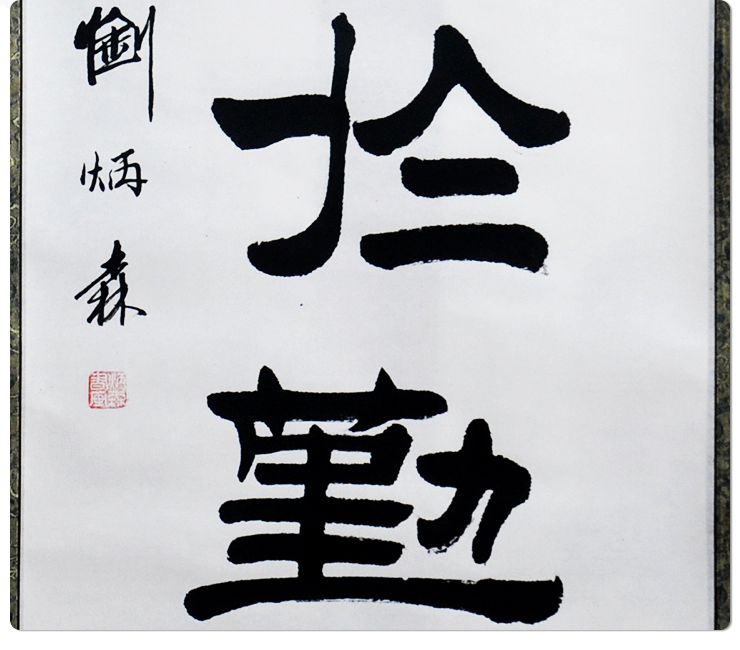 扵勤
劉炳森